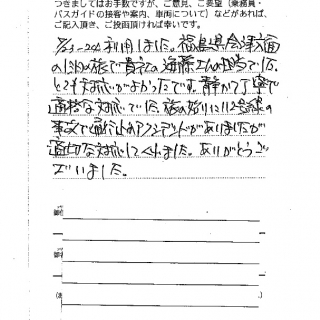 つきましてはお手数ですが、ご意見、ご要望（乗務員・
バスガイドの接客や案内、車両について）などがあれば、
ご記入頂き、ご投函頂ければ幸いです。
利用しました。福島県会津方面
の旅で貴社の
とても対応がよかったです。静かで丁寧で
適格な対応でした。旅の始りに112号線の
事故で通行止のアクシデントがありましたが
適切な対応してくれました。ありがとうご
ざいました。